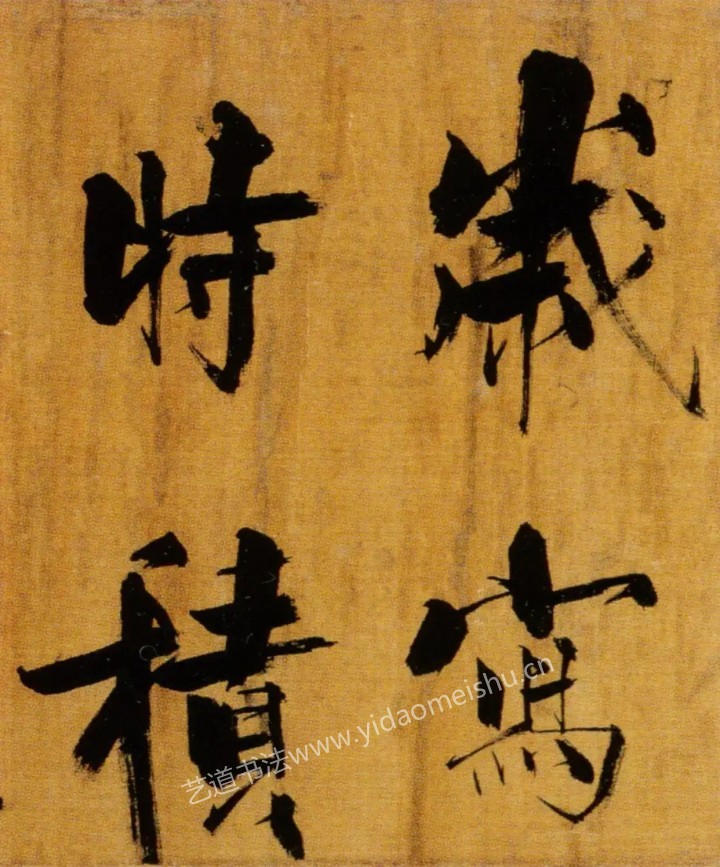 歲寫
時積
艺道书法www.yidaomeishu.cn